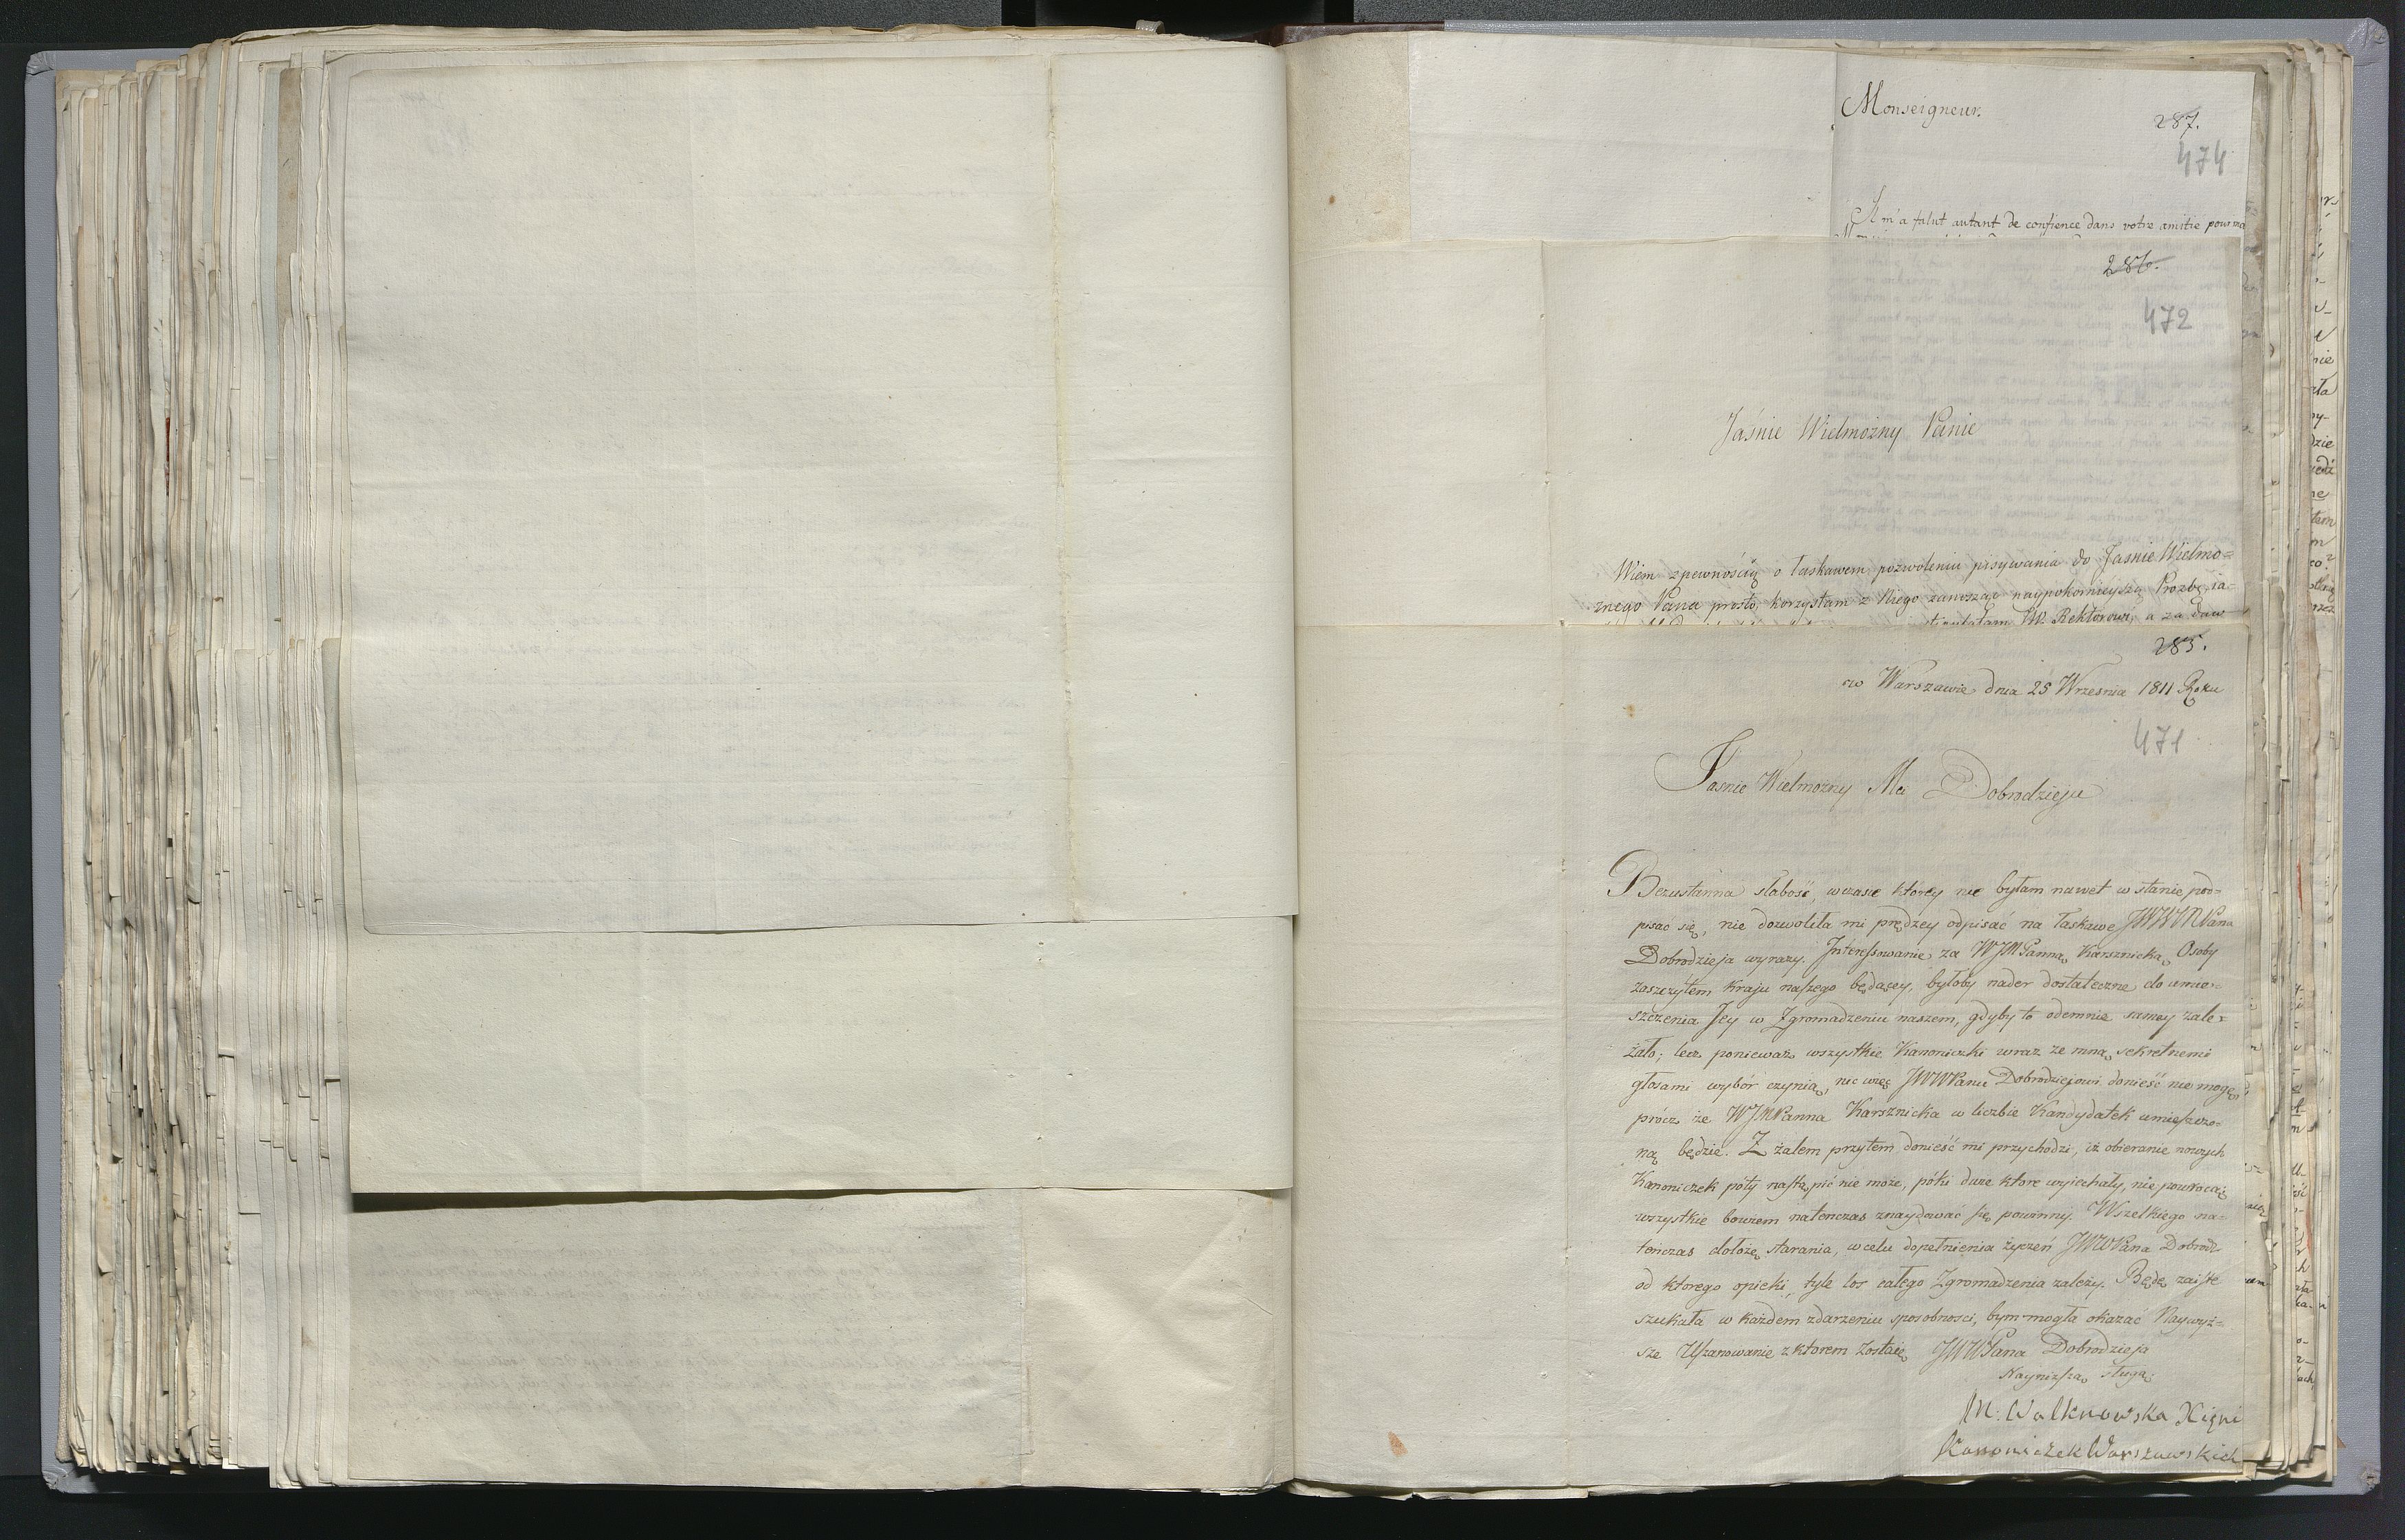 Monseigneur.
287.
474
Il m'a falut autant de confience dans votre amitie pour ma
286.
472
Jaśnie Wielmożny Panie
Wiem z pewnością o łaskawem pozwoleniu pisywania do Jaśnie Wielmo=
żnego Pana prosto, korzystam z Niego zanosząc naypokornieyszą Prożbę, ia=
JW. Rektorowi, a za daw
285.
w Warszawie dnia 25 Wrzesnia 1811 Roku
471
Jasnie Wielmożny Mci Dobrodzieju
Bezustanna słabość, w czasie którey nie byłam nawet w stanie pod=
pisać się, nie dozwoliła mi prędzey odpisać na łaskawe JWWMPana
Dobrodzieja wyrazy. Interessowanie za WJMPanną Karsznicką, Osoby
zaszczytem kraju naszego będącey, byłoby nader dostateczne do umie=
szczenia Jey w Zgromadzeniu naszem, gdyby to odemnie samey zale=
żało; lecz ponieważ wszystkie Kanoniczki wraz ze mną sekretnemi
głosami wybór czynią, nic więc JWWPanu Dobrodziejowi donieść nie mogę,
prócz że WJMPanna Karsznicka w liczbie Kandydatek umieszczo=
ną będzie. Z żalem przytem donieść mi przychodzi, iż obieranie nowych
Kanoniczek póty nastąpić nie może, póki dwie ktore wyiechały, nie powrócą;
wszystkie bowiem natenczas znaydować się powinny. Wszelkiego na=
tenczas dołożę starania, w celu dopełnienia życzeń JWWPana Dobrodz.
od ktorego opieki, tyle los całego Zgromadzenia zależy. Będę zaiste
szukała w każdem zdarzeniu sposobnosci, bym mogła okazać Naywyż=
sze Uszanowanie z ktorem zostaię JWWPana Dobrodzieja
Nayniższą sługą
M: Walknowska Xięni
Kanoniczek Warszawskich